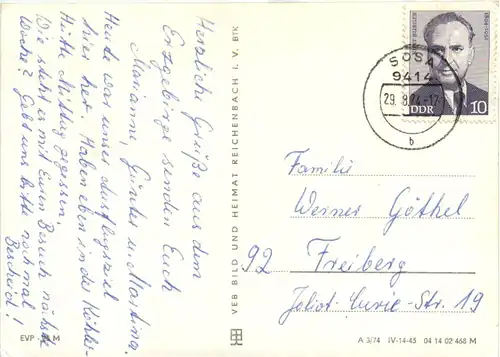 Herzliche Grüße aus dem
Erzgebirge senden Euch
Marianne, Günter u. Martina.
Heute war unser Ausflugsziel
hier her. Haben eben in der Köhler-
Hütte Mittag gegessen.
Wie steht es mit Euren Besuch nächste
Woche? Gebt uns bitte noch mal
Bescheid!
EVP M
VEB BILD UND HEIMAT REICHENBACH I. V. BTK
1894-1951
DDR
10
SOSA
9414
29.8.74-12
b
Familie
Werner Göthel
92 Freiberg
Joliot-Curie-Str. 19
A 3/74 IV-14-45 04 14 02 468 M